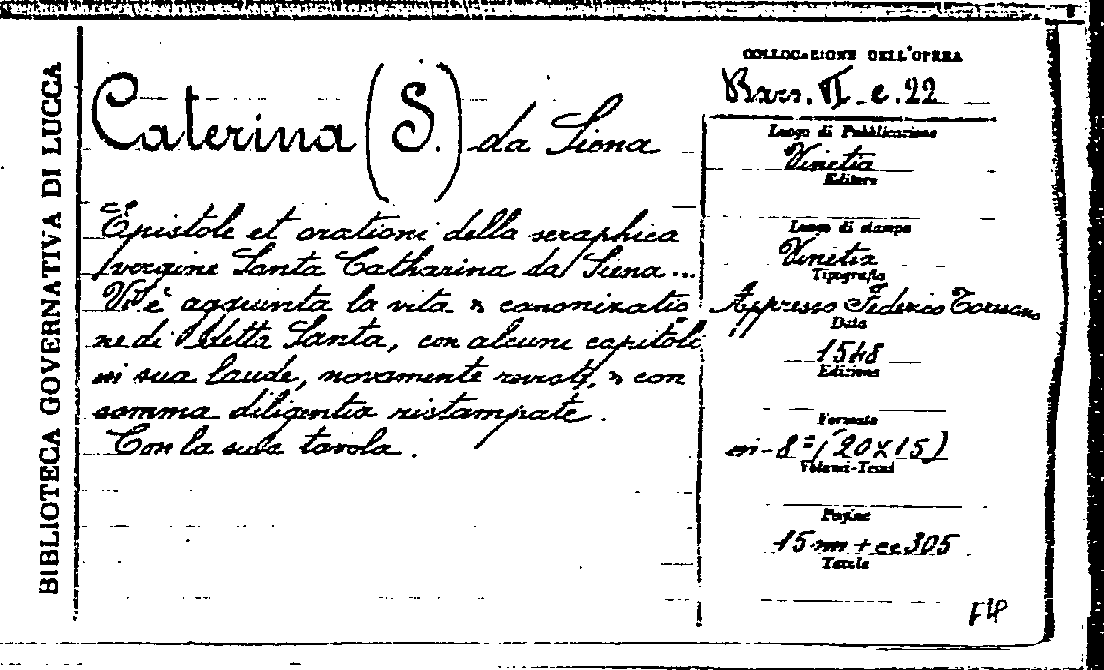 BIBLIOTECA GOVERNATIVA DI LUCCA
Caterina (S.) da Siena
Epistole et orationi della seraphica
vergine Santa Catharina da Siena...
Vi è aggiunta la vita & canonizatio
ne di detta Santa, con alcuni capitoli
in sua laude, novamente reviste, & con
somma diligentia ristampate.
Con la sua tavola.
COLLOCAZIONE DELL'OPERA
II. e. 22
Luogo di Pubblicazione
Vinetia
Editore
Luogo di stampa
Vinetia
Tipografia
Appresso Federico Toresano
Data
1548
Edizione
Formato
in-8º (20x15)
Volumi-Tomi
Pagine
15 nn + cc 305
Tavole